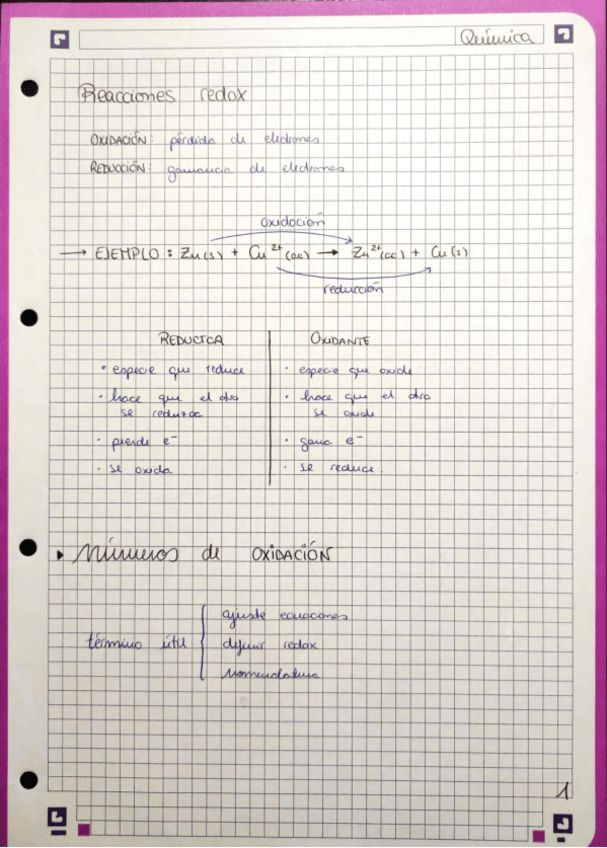 Química
Reacciones redox
OXIDACIÓN: pérdida de electrones
REDUCCIÓN: ganancia de electrones
oxidación
→ EJEMPLO: Zn(s) + Cu²⁺(ac) → Zn²⁺(ac) + Cu(s)
reducción
REDUCTOR
• especie que reduce
• hace que el otro
se reduzca
• pierde e⁻
• se oxida
OXIDANTE
• especie que oxide
• hace que el otro
se oxide
• gana e⁻
• se reduce.
▸ Números de OXIDACIÓN
término útil
ajuste ecuaciones
definir redox
Nomenclatura
1